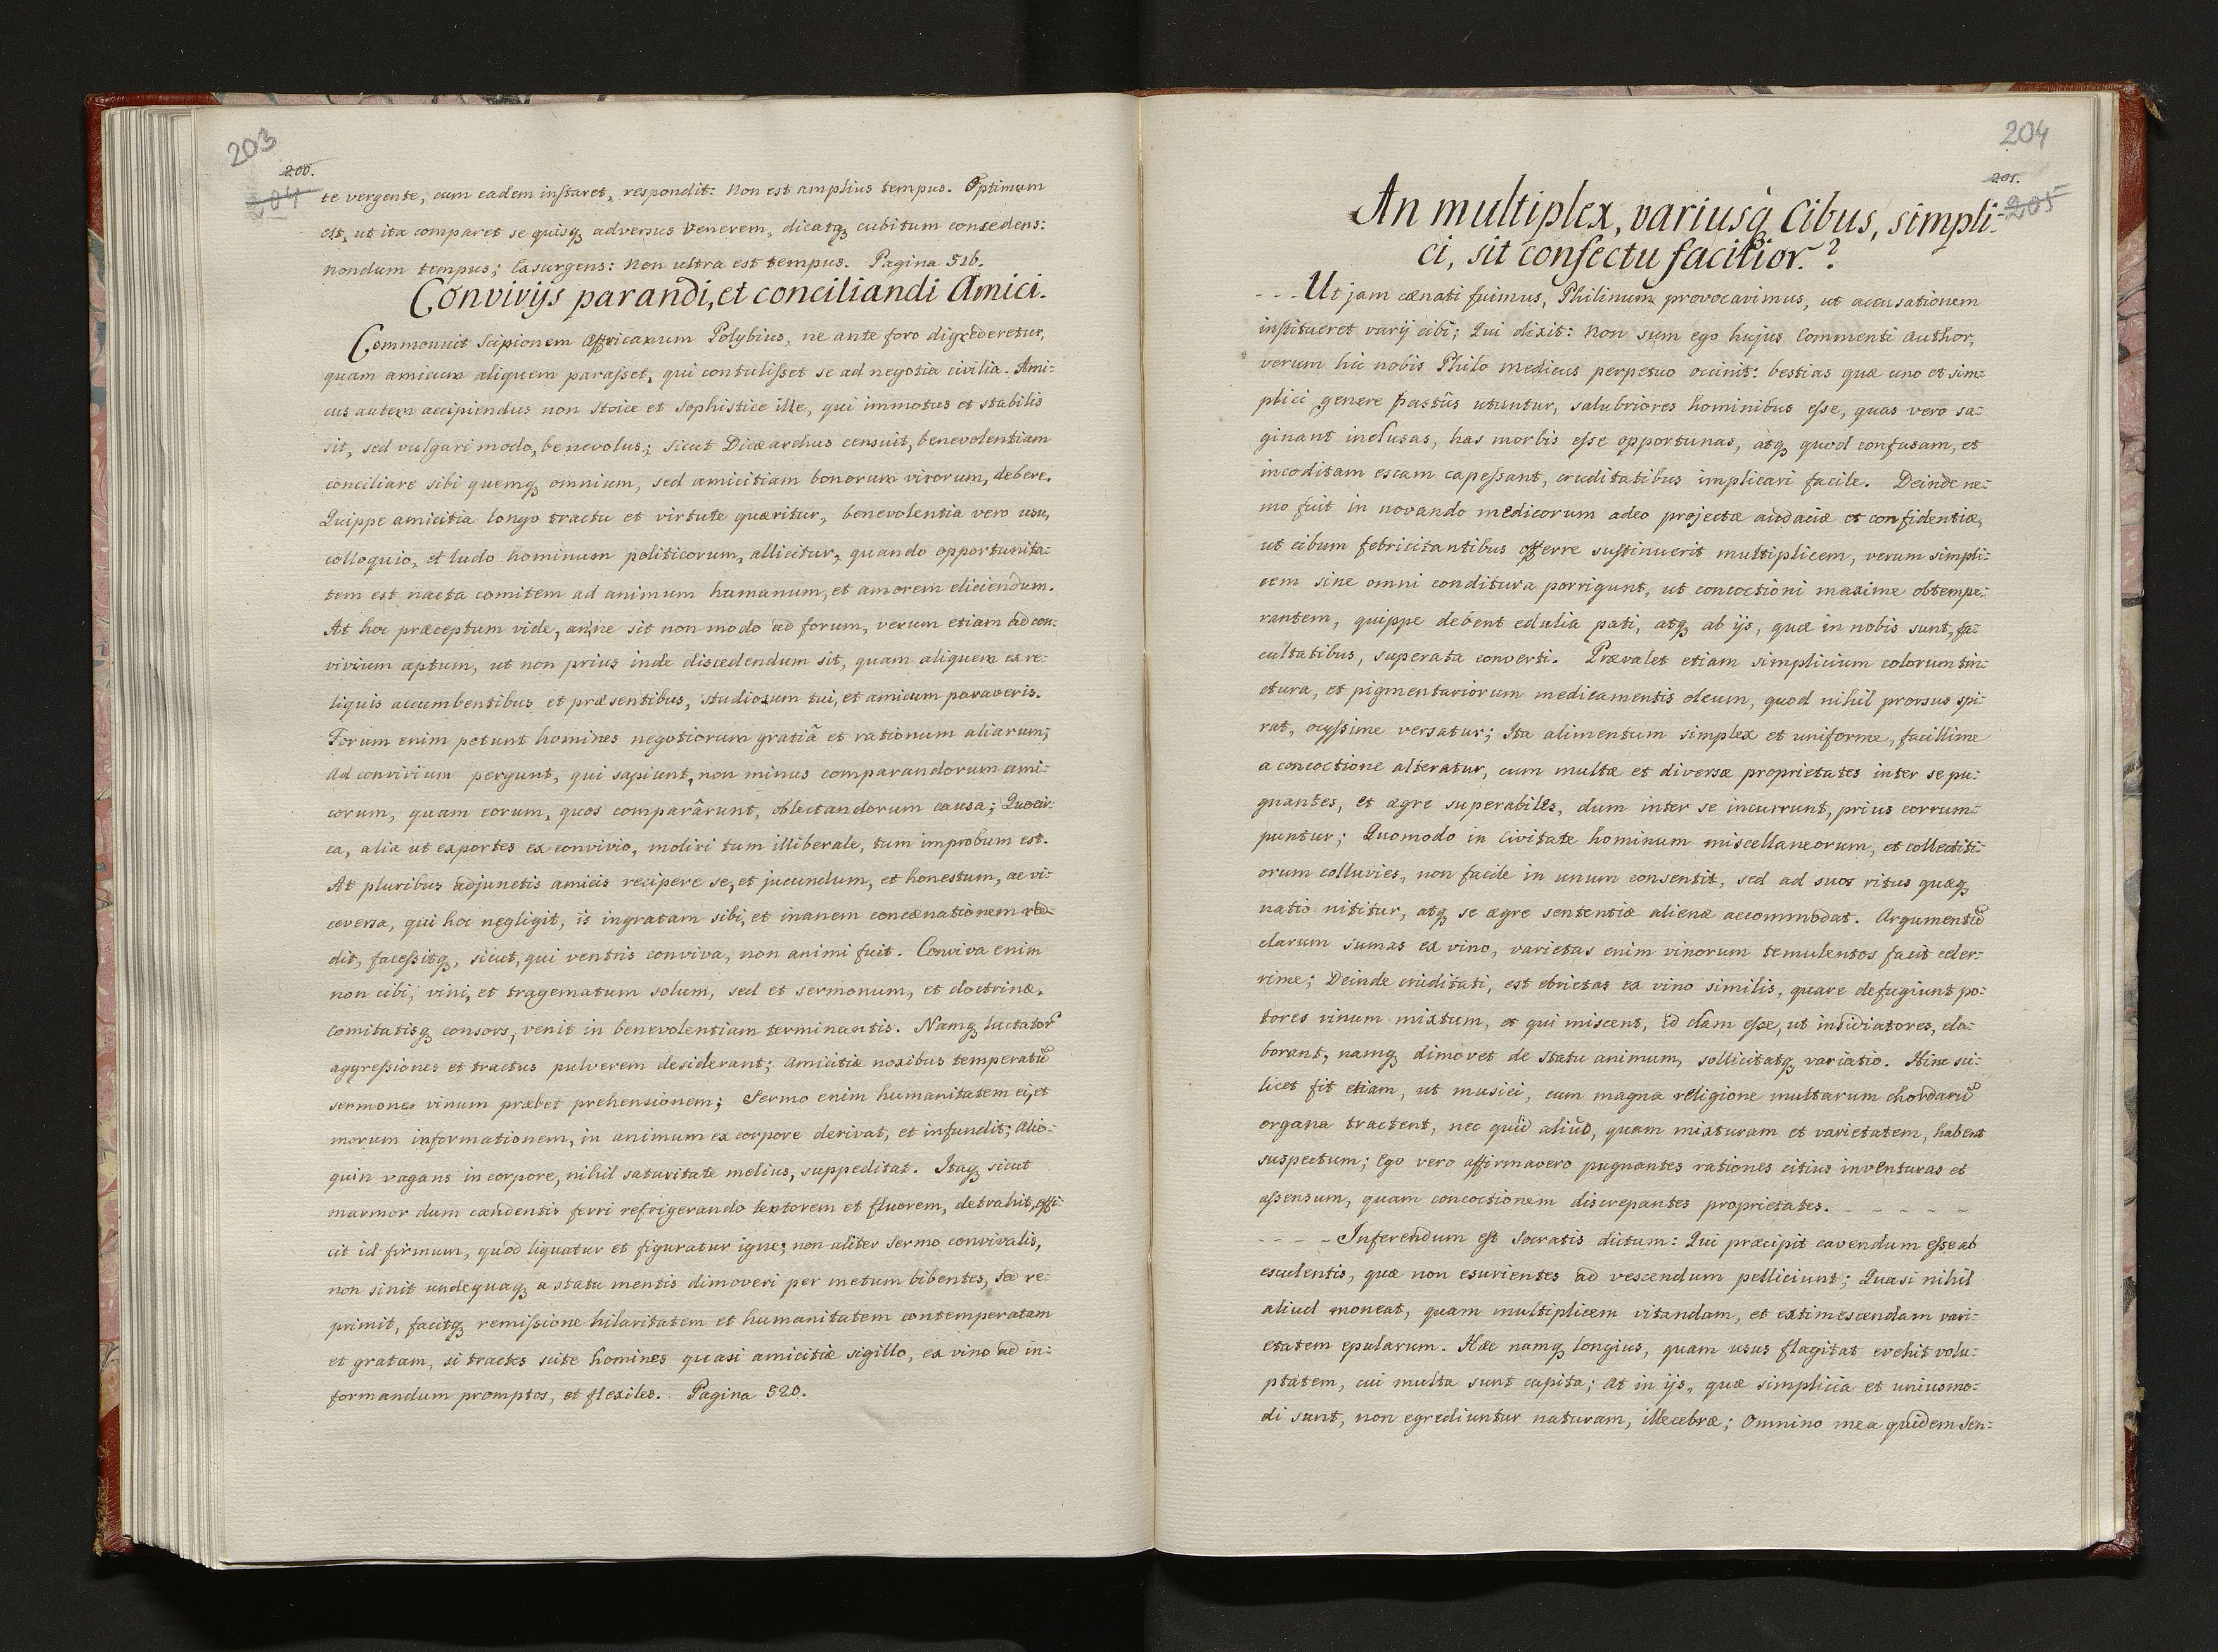 203
200.
204
te vergente, cum eadem instaret, respondit: Non est amplius tempus. Optimum
est, ut ita comparet se quisq₃ adversus Venerem, dicatq₃ cubitum concedens:
Nondum tempus; Exsurgens: Non ultra est tempus. Pagina 516.
Convivijs parandi, et conciliandi Amici.
Commonuit Scipionem Affricanum Polybius, ne ante foro digrederetur,
quam amicum aliquem parasset, qui contulisset se ad negotia civilia. Ami:
cus autem accipiendus non Stoice et Sophistice ille, qui immotus et stabilis
sit, sed vulgari modo, benevolus; Sicut Dicæarchus censuit, benevolentiam
conciliare sibi quemq₃ omnium, sed amicitiam bonorum virorum, debere.
Quippe amicitia longo tractu et virtute quæritur, benevolentia vero usu,
colloquio, et ludo hominum politicorum, allicitur, quando opportunita:
tem est nacta comitem ad animum humanum, et amorem eliciendum.
At hoc præceptum vide, anne sit non modo ad forum, verum etiam ad con:
vivium aptum, ut non prius inde discedendum sit, quam aliquem ex re:
liquis accumbentibus et præsentibus, studiosum tui, et amicum paraveris.
Forum enim petunt homines negotiorum gratiâ et rationum aliarum;
Ad convivium pergunt, qui sapiunt, non minus comparandorum ami:
corum, quam eorum, quos comparârunt, oblectandorum causa; Quocir:
ca, alia ut exportes ex convivio, moliri tum illiberale, tum improbum est.
At pluribus adjunctis amicis recipere se, et jucundum, et honestum, ac vi:
ceversa, qui hoc negligit, is ingratam sibi, et inanem concœnationem red:
dit, facessitq₃, sicut, qui ventris conviva, non animi fuit. Conviva enim
non cibi, vini, et tragematum solum, sed et sermonum, et doctrinæ,
Comitatisq₃ consors, venit in benevolentiam terminantis. Namq₃ luctatorũ
aggressiones et tractus pulverem desiderant; Amicitiæ noxibus temperatũ
sermones vinum præbet prehensionem; Sermo enim humanitatem ei, et
morum informationem, in animum ex corpore derivat, et infundit; Alio:
quin vagans in corpore, nihil saturitate melius, suppeditat. Itaq₃ sicut
marmor dum candentis ferri refrigerando lentorem et fluorem, detrahit, effi:
cit id firmum, quod liquatur et figuratur igne; non aliter Sermo convivalis,
non sinit undequaq₃ a statu mentis dimoveri per metum bibentes, sed re:
primit, facitq₃ remissione hilaritatem et humanitatem contemperatam
et gratam, si tractes scite homines quasi amicitiæ sigillo, ex vino ad in:
formandum promptos, et flexiles. Pagina 520.
204
201.
205
An multiplex, variusq́ Cibus, simpli:
ci, sit confectu facilior.?
- - - Ut jam cœnati fuimus, Philinum provocavimus, ut accusationem
institueret varij cibi; Qui dixit: Non sum ego hujus Commenti Author,
verum hic nobis Philo medicus perpetuo occinit: bestias quæ uno et sim:
plici genere pastûs utuntur, salubriores hominibus esse, quas vero sa:
ginant inclusas, has morbis esse opportunas, atq₃ quod confusam, et
inconditam escam capessant, cruditatibus implicari facile. Deinde ne:
mo fuit in novando medicorum adeo projectæ audaciæ et confidentiæ,
ut cibum febricitantibus offerre sustinuerit multiplicem, verum simpli:
cem sine omni conditura porrigunt, ut concoctioni maxime obtempe:
rantem, quippe debent edulia pati, atq₃ ab ijs, quæ in nobis sunt, fa:
cultatibus, superata converti. Prævalet etiam simplicium colorum tin:
ctura, et pigmentariorum medicamentis oleum, quod nihil prorsus spi:
rat, ocyssime versatur; Ita alimentum simplex et uniforme, facillime
a concoctione alteratur, cum multæ et diversæ proprietates inter se pu:
gnantes, et ægre superabiles, dum inter se incurrunt, prius corrum:
puntur; Quomodo in Civitate hominum miscellaneorum, et collectiti:
orum colluvies, non facile in unum consentit, sed ad suos ritus quæq₃
natio nititur, atq₃ se ægre sententiæ alienæ accommodat. Argumentũ
clarum sumas ex vino, varietas enim vinorum temulentos facit celer:
rime; Deinde cruditati, est ebrietas ex vino similis, quare defugiunt po:
tores vinum mixtum, et qui miscent, id clam esse, ut insidiatores, ela:
borant, namq₃ dimovet de statu animum, sollicitatq₃ variatio. Hinc sci:
licet fit etiam, ut musici, cum magna religione multarum chordarũ
organa tractent, nec quid aliud, quam mixturam et varietatem, habent
suspectum; Ego vero affirmavero pugnantes rationes citius inventuras et
assensum, quam concoctionem discrepantes proprietates. - - - - -
- - - - Inferendum est Socratis dictum: Qui præcipit cavendum esse ab
esculentis, quæ non esurientes ad vescendum pelliciunt; Quasi nihil
aliud moneat, quam multiplicem vitandam, et extimescendam vari:
etatem epularum. Hæc namq₃ longius, quam usus flagitat evehit volu:
ptatem, cui multa sunt capita; At in ijs, quæ simplicia et uniusmo:
di sunt, non egrediuntur naturam, illecebræ; Omnino mea quidem sen: